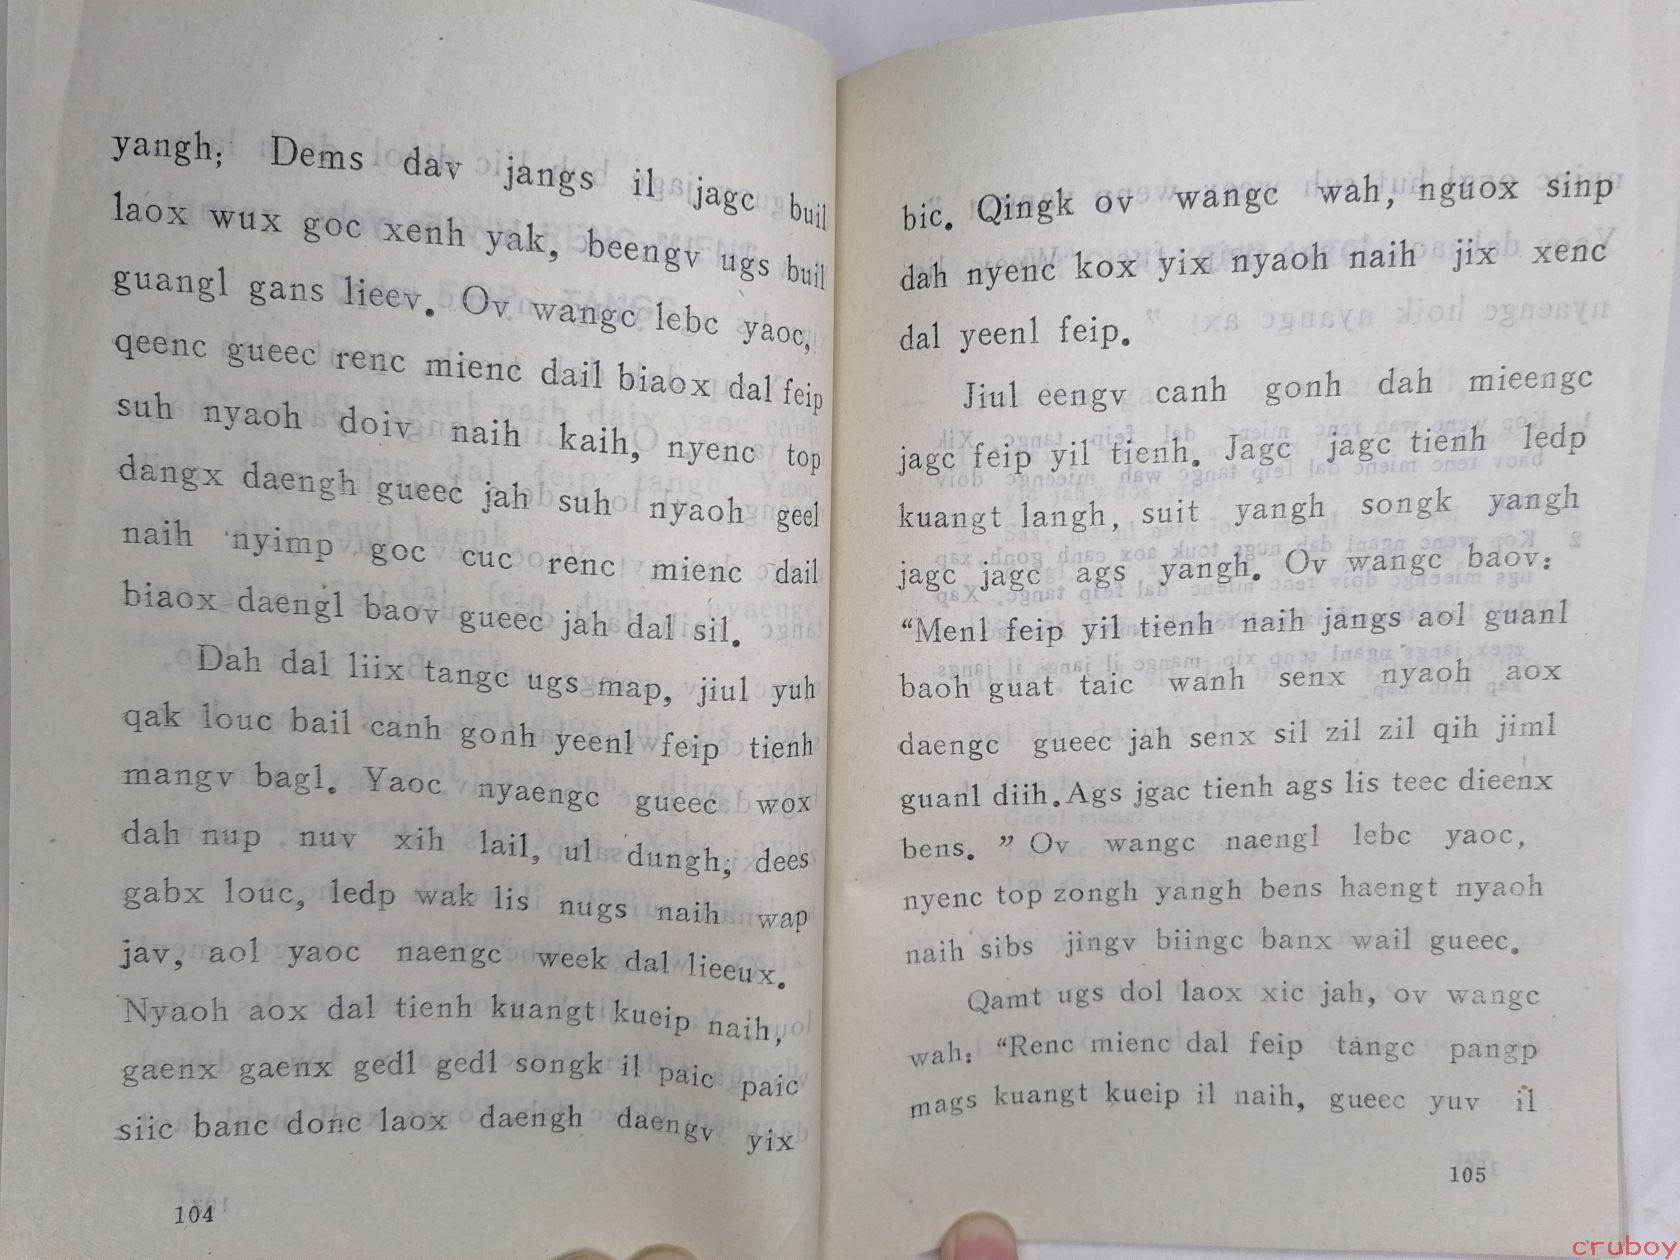 yangh; Dems dav jangs il jagc buil
laox wux goc xenh yak, beengv ugs buil
guangl gans lieev. Ov wangc lebc yaoc,
qeenc gueec renc mienc dail biaox dal feip
suh nyaoh doiv naih kaih, nyenc top
dangx daengh gueec jah suh nyaoh geel
naih nyimp goc cuc renc mienc dail
biaox daengl baov gueec jah dal sil.
Dah dal liix tangc ugs map, jiul yuh
qak louc bail canh gonh yeenl feip tienh
mangv bagl. Yaoc nyaengc gueec wox
dah nup nuv xih lail, ul dungh; dees
gabx louc, ledp wak lis nugs naih wap
jav, aol yaoc naengc week dal lieeux.
Nyaoh aox dal tienh kuangt kueip naih,
gaenx gaenx gedl gedl songk il paic paic
siic banc donc laox daengh daengv yix
104
bic. Qingk ov wangc wah, nguox sinp
dah nyenc kox yix nyaoh naih jix xenc
dal yeenl feip.
Jiul eengv canh gonh dah mieengc
jagc feip yil tienh. Jagc jagc tienh ledp
kuangt langh, suit yangh songk yangh
jagc jagc ags yangh. Ov wangc baov:
“Menl feip yil tienh naih jangs aol guanl
baoh guat taic wanh senx nyaoh aox
daengc gueec jah senx sil zil zil qih jiml
guanl diih. Ags jgac tienh ags lis teec dieenx
bens. ” Ov wangc naengl lebc yaoc,
nyenc top zongh yangh bens haengt nyaoh
naih sibs jingv biingc banx wail gueec.
Qamt ugs dol laox xic jah, ov wangc
wah: “Renc mienc dal feip tangc pangp
mags kuangt kueip il naih, gueec yuv il
105
cruboy